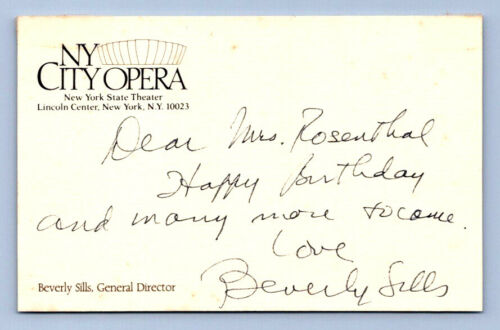 NY
CITY OPERA
New York State Theater
Lincoln Center, New York, N.Y. 10023
Dear Mrs. Rosenthal
Happy Birthday
and many more to come.
Love
Beverly Sills
Beverly Sills, General Director